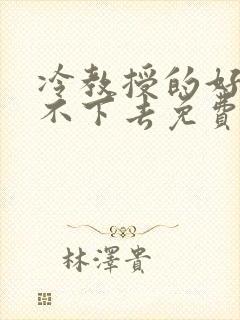 冷教授的好
不下去免費
林澤貴